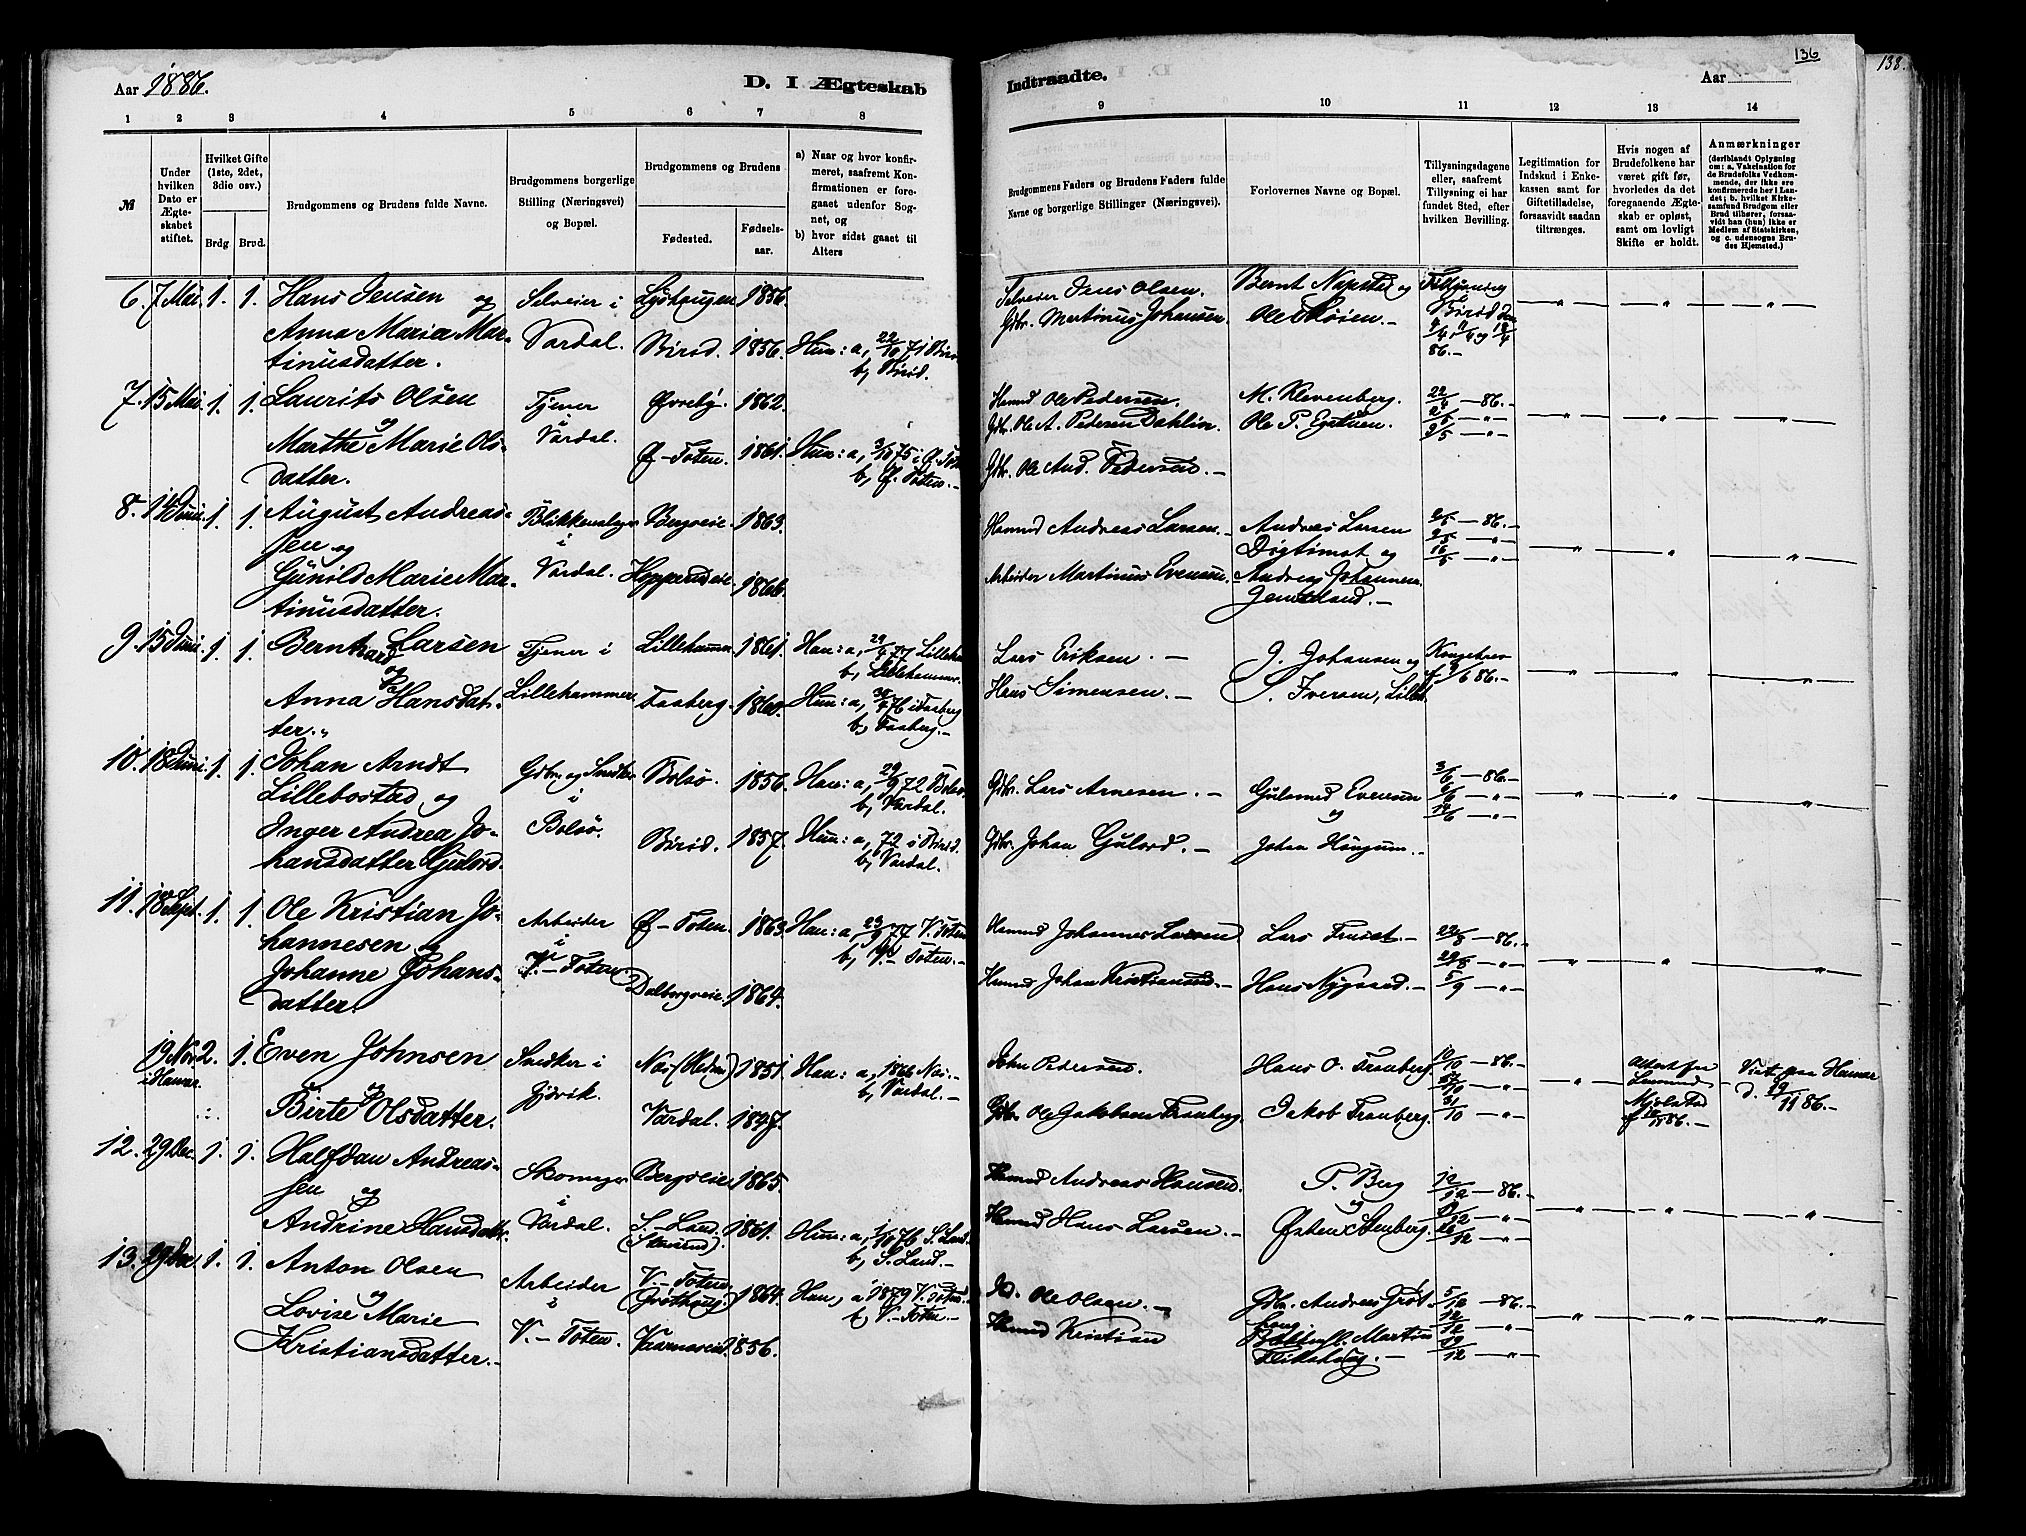 136
138.
Aar 1886.
D. I Ægteskab
Indtraadte.
Aar
1 2 3 4 5 6 7 8
9 10 11 12 13 14
№
Under hvilken Dato er Ægteskabet stiftet.
Hvilket Gifte (1ste, 2det, 3die osv.)
Brdg. Brud.
Brudgommens og Brudens fulde Navne.
Brudgommens borgerlige Stilling (Næringsvei) og Bopæl.
Brudgommens og Brudens
Fødested.
Fødselsaar.
a) Naar og hvor konfirmeret, saafremt Konfirmationen er foregaaet udenfor Sognet, og
b) hvor sidst gaaet til Alters
Brudgommens Faders og Brudens Faders fulde Navne og borgerlige Stillinger (Næringsvei).
Forlovernes Navne og Bopæl.
Tillysningsdagene eller, saafremt Tillysning ei har fundet Sted, efter hvilken Bevilling.
Legitimation for Indskud i Enkekassen samt for Giftetilladelse, forsaavidt saadan tiltrænges.
Hvis nogen af Brudefolkene har været gift før, hvorledes da det foregaaende Ægteskab er opløst, samt om lovligt Skifte er holdt.
Anmærkninger
(deriblandt Oplysning om: a. Vakcination for de Brudefolks Vedkommende, der ikke ere konfirmerede her i Landet; b. hvilket Kirkesamfund Brudgom eller Brud tilhører, forsaavidt han (hun) ikke er Medlem af Statskirken, og c. udensogns Brudes Hjemsted.)
6. 7 Mai. 1. 1. Hans Jensen og Selveier i Lysthaugen 1856.
Anna Maria Mar- Vardal. Birid. 1856. Hun: a, 22/10 71 Birid
tinusdatter. b, Birid.
Selveier Jens Olsen. Bernt Napstad og Tillysning
Gbr. Martinus Johansen. Ole Skøien. i Birid den
4/4 11/4 og 18/4
86.
7. 15 Mai. 1. 1. Laurits Olsen Tjener Øvreby. 1862.
og i
Marthe Marie Ols- Vardal. Ø-Toten. 1861. Hun: a, 3/10 75 i Ø. Toten
datter. b, Ø. Toten.
Hmnd Ole Pedersen. M. Klevenberg. 22/4 - 86.
Gbr. Ole A. Pedersen Dahlin. Ole P. 2/5
9/5
Gbr. Ole And. Pedersen.
8. 14 Juni. 1. 1. August Andreas- Blikkenslager Bergseie. 1863.
sen og i
Gunild Marie Mar- Vardal. 1866.
tinusdatter.
Hmnd Andreas Larsen. Andreas Larsen 2/5 - 86.
Digtimot og 9/5
Arbeider Martinus Evensen. Andreas Johannesen 16/5
9. 15 Juni. 1. 1. Bernhard Larsen Tjener i Lillehammer 1861. Han: a, 77 Lilleh.
og b, Lillehammer.
Anna Hansdat- Lillehammer. Faaberg. 1860. Hun: a, 76 i Faaberg
ter. b, Faaberg.
Lars Eriksen. J. Johansen og Kongebrev
Hans Simensen. S. Iversen, Lilleh. 9/6 86.
10. 18 Juni. 1. 1. Johan Arndt Gbr. og Snedker Bolsø. 1856. Han: a, 29/9 72 Bolsø
Lillebostad og i b, Vardal.
Inger Andrea Jo- Bolsø. Birid. 1857. Hun: a, 72 i Birid.
hansdatter Gulord. b, Vardal.
Gbr. Lars Arnesen. Evensen 3/6 - 86.
og 6/6
Gbr. Johan Gulord. Johan Haugum.
11. 18 Sept. 1. 1. Ole Kristian Jo- Arbeider Ø-Toten. 1863. Han: a, 23/9 77 V. Toten
hannesen og i b, V.-Toten.
Johanne Johans- V.-Toten. Dalborgseie. 1864.
datter.
Hmnd Johannes Larsen Lars Fruset 22/8 - 86.
29/8
Hmnd Johan Kristiansen. Hans Nygaard. 5/9
19 Nov. 2. 1. Even Johnsen Snedker i Næs (Hedm.) 1851. Han: a, 1866 Næs.
i Hamar. og Gjøvik. b, Vardal.
Birte Olsdatter. Vardal. 1847.
John Pedersen. Hans O. Tranberg 10/10 - 86. Attest fra Viet paa Hamar
Lensmand d. 19/11 86.
Gbr. Ole Jakobsen Tranberg. Jakob Tranberg. 31/10 Mjølstad
86.
12. 29 Dec. 1. 1. Halfdan Andreas- Skomager Bergseie 1865.
sen og i
Andrine Hansdatter Vardal. S.-Land 1861. Hun: a, 1/10 76 S. Land.
b, S. Land.
Hmnd Andreas Hansen. P. Berg 12/12 - 86.
og
Hmnd Hans Larsen. Østen Stenberg. 26/12
13. 29 Dec 1. 1. Anton Olsen Arbeider V.-Toten 1864. Han, a 1879 V. Toten.
og i b, V.-Toten.
Lovise Marie V.-Toten. 1856.
Kristiansdatter.
Ole Olsen. Gbr. Andreas 5/12 - 86.
12/12
Hmnd Kristian Martin 19/12